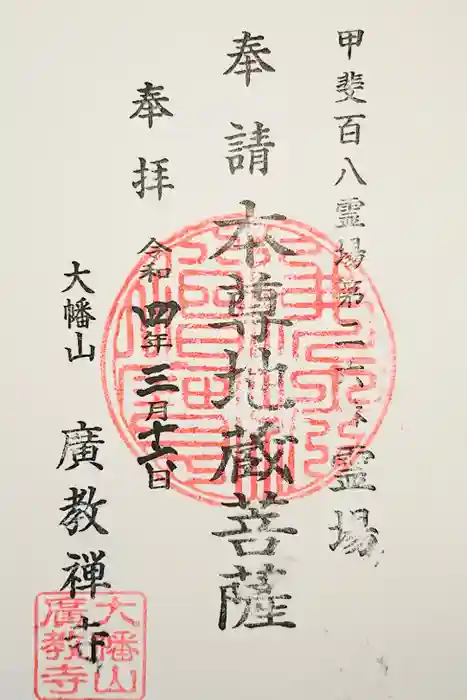 甲斐百八霊場第二十六番霊場
奉請本尊地蔵菩薩
奉拝
令和四年三月十六日
大幡山
廣教禅寺
大幡山
廣教寺